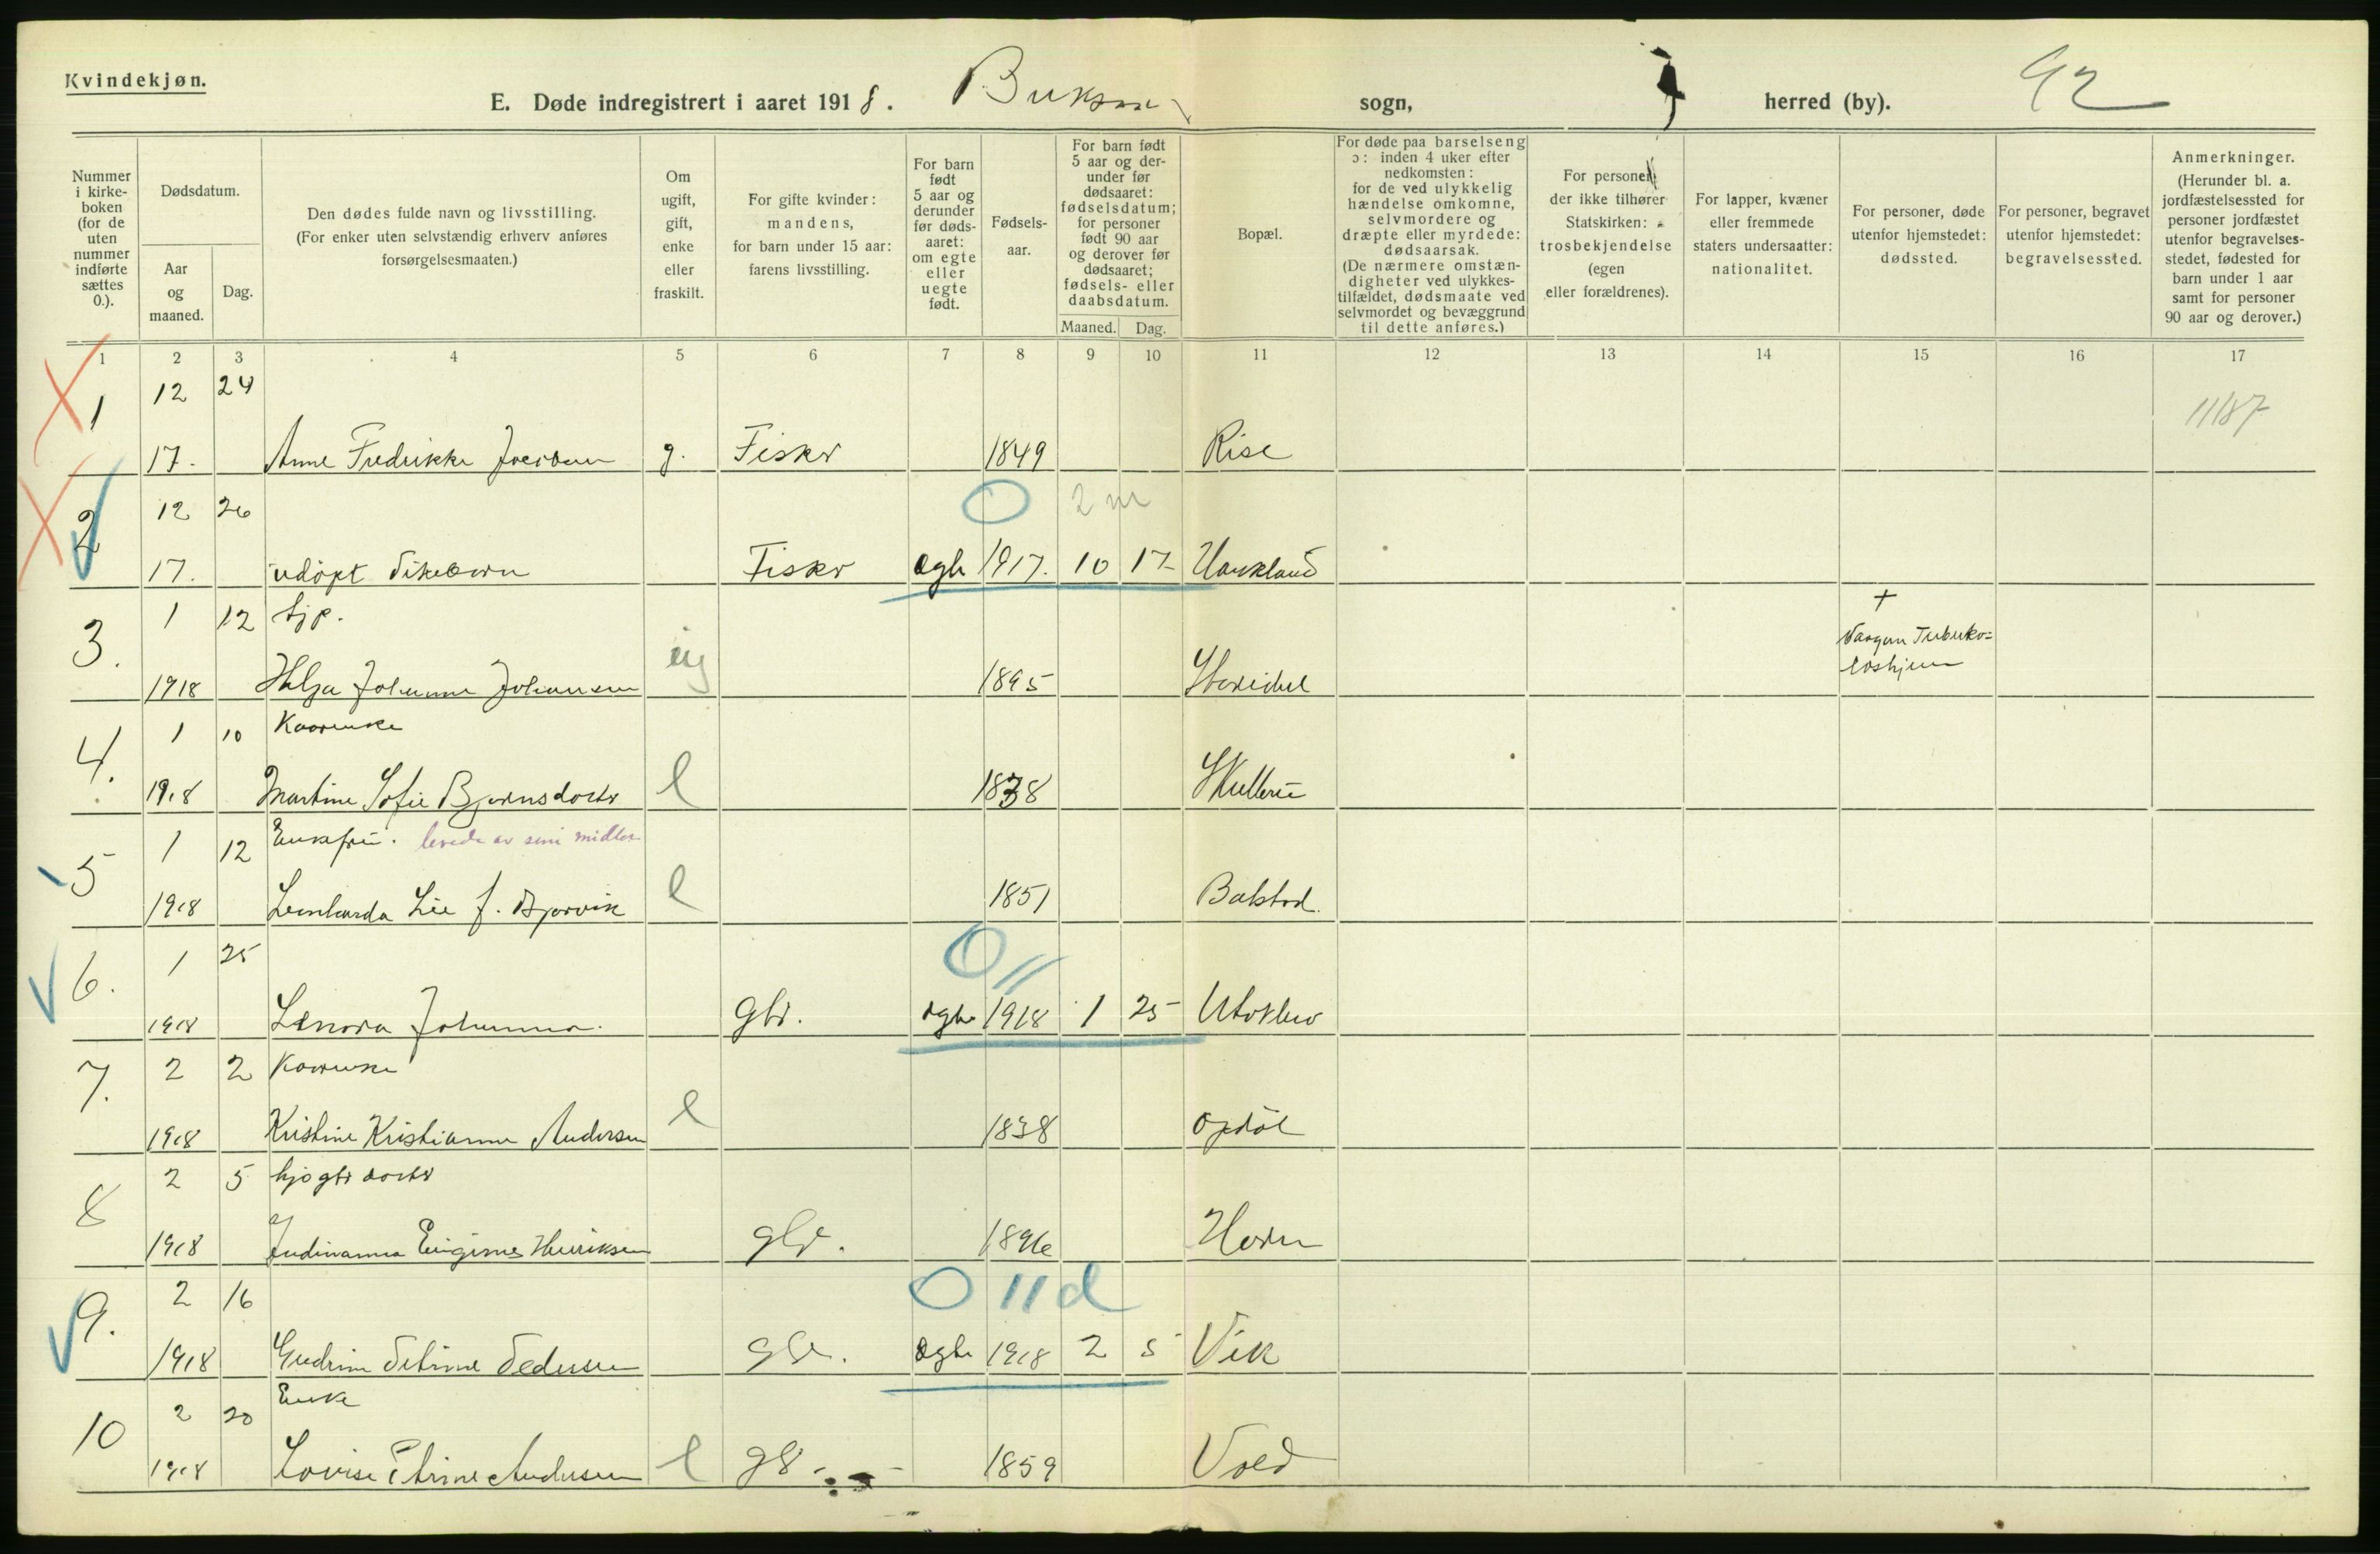 Kvindekjøn.
E. Døde indregistrert i aaret 1918. Buksnes sogn, herred (by). 92
Nummer i kirkeboken (for de uten nummer indførte sættes 0.).
Dødsdatum.
Aar og maaned.
Dag.
Den dødes fulde navn og livsstilling.
(For enker uten selvstændig erhverv anføres forsørgelsesmaaten.)
Om ugift, gift, enke eller fraskilt.
For gifte kvinder: mandens, for barn under 15 aar: farens livsstilling.
For barn født 5 aar og derunder før dødsaaret: om egte eller uegte født.
Fødselsaar.
For barn født 5 aar og derunder før dødsaaret: fødselsdatum; for personer født 90 aar og derover før dødsaaret; fødsels- eller daabsdatum.
Maaned.
Dag.
Bopæl.
For døde paa barselseng ɔ: inden 4 uker efter nedkomsten: for de ved ulykkelig hændelse omkomne, selvmordere og dræpte eller myrdede: dødsaarsak. (De nærmere omstændigheter ved ulykkestilfældet, dødsmaate ved selvmordet og bevæggrund til dette anføres.)
For personer, der ikke tilhører Statskirken: trosbekjendelse (egen eller forældrenes).
For lapper, kvæner eller fremmede staters undersaatter: nationalitet.
For personer, døde utenfor hjemstedet: dødssted.
For personer, begravet utenfor hjemstedet: begravelsessted.
Anmerkninger.
(Herunder bl. a. jordfæstelsessted for personer jordfæstet utenfor begravelsesstedet, fødested for barn under 1 aar samt for personer 90 aar og derover.)
1 2 3 4 5 6 7 8 9 10 11 12 13 14 15 16 17
1 12 24
17. Anne Fredrikke g. Fisker 1849 Rise 11187
2 12 26 0 2 m
17. udöpt Pikebarn Fisker egte 1917. 10 17 Haukland
3. 1 12 tjp.
1918 Helga Johanne Johansen ug 1895 + Tuberkuloshjem
4. 1 10 Kaarenke
1918 Martine Sofie Bjørnsdatter e 1838
5 1 12 Enkefru. levede av sine midler
1918 Leonharda Lie f. Bjørvik e 1851 Balstad.
6. 1 25 0 11
1918 Lenora Johanna. gbr. egte 1918 1 25 Utakleiv
7. 2 2 Kaarenke
1918 Kristine Kristianne Andersen e 1838 Opdöl
8 2 5 hjo gbr datter
1918 Henriksen gbr. 1896 Horn
9. 2 16 0 11 d
1918 Gudrun Petrine Pedersen gbr. egte 1918 2 5 Vik
10 2 20 Enke
1918 Lovise Petrine Andersen e gb. 1859 Vold